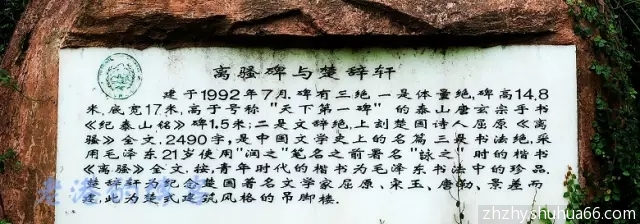 离骚碑与楚辞轩
建于1992年7月.碑有三绝.一是体量绝,碑高14.8
米,底宽17米,高于号称"天下第一碑"的泰山唐玄宗手书
《纪泰山铭》碑1.5米;二是文辞绝,上刻楚国诗人屈原《离
骚》全文,2490字,是中国文学史上的名篇三是书法绝,采
用毛泽东21岁使用"润之"笔名之前署名"詠之"时的楷书
《离骚》全文.按,青年时代的楷书为毛泽东书法中的珍品.
楚辞轩为纪念楚国著名文学家屈原、宋玉、唐勒、景差而
建,此为楚式建筑风格的吊脚楼.
zhzhyshuhua66.com